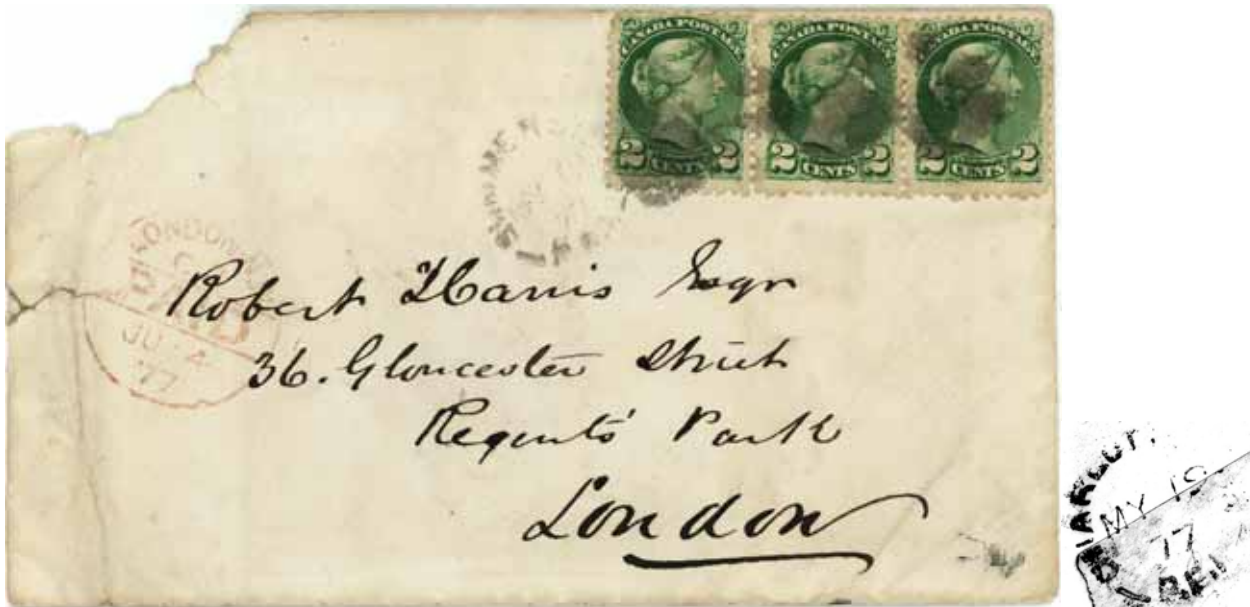 CANADA POSTAGE CANADA POSTAGE CANADA POSTAGE
2 CENTS 2 2 CENTS 2 2 CENTS 2
LONDON
JU 4
77
Robert Harris Esqr
36. Gloucester Street
Regents' Park
London
MY 19
77